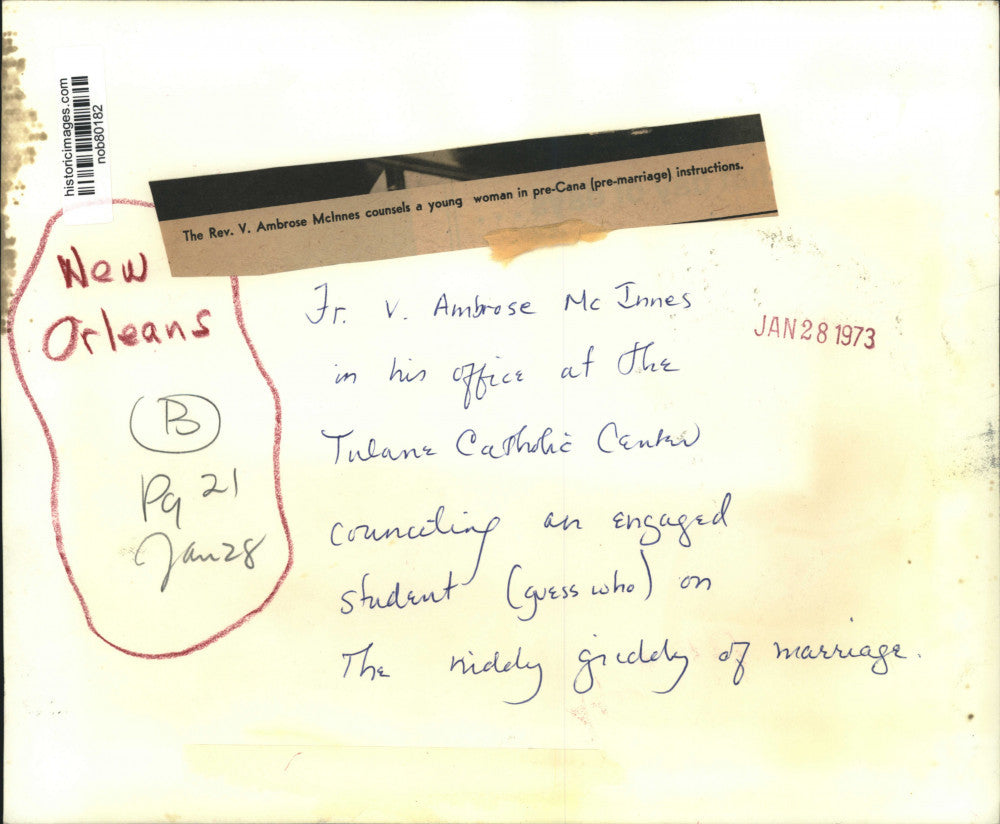 historicimages.com
nob80182
The Rev. V. Ambrose McInnes counsels a young woman in pre-Cana (pre-marriage) instructions.
New
Orleans
B
Pg 21
Jan 28
Fr. V. Ambrose Mc Innes
in his office at the
Tulane Catholic Center
counciling an engaged
student (guess who) on
The niddy griddy of marriage.
JAN 28 1973